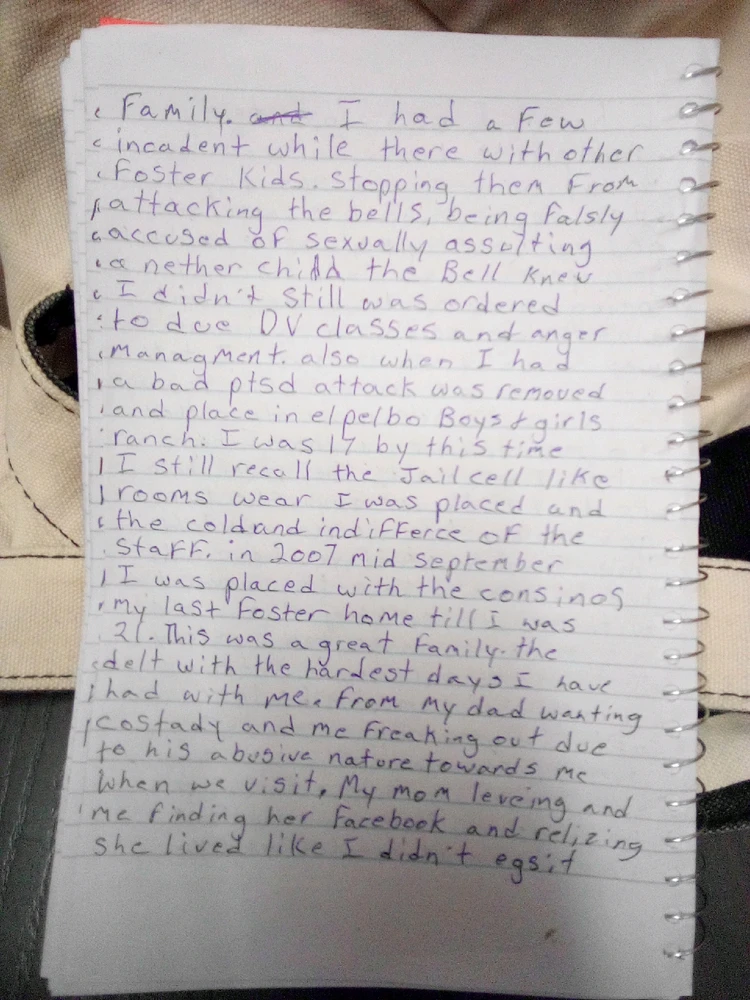 Family. and I had a Few
incadent while there with other
Foster Kids. Stopping them From
attacking the bells, being falsly
accused of sexually assulting
a nether child the Bell Knew
I didn't still was ordered
to due DV classes and anger
managment. also when I had
a bad ptsd attack was removed
and place in elpelbo Boys & girls
ranch. I was 17 by this time
I still recall the Jail cell like
rooms wear I was placed and
the cold and indifferce of the
Staff. in 2007 mid September
I was placed with the consinos
my last Foster home till I was
21. This was a great Family. the
delt with the hardest days I have
had with me. From my dad wanting
costady and me Freaking out due
to his abusive nature towards me
when we visit, My mom leveing and
me finding her Facebook and relizing
she lived like I didn't egsit